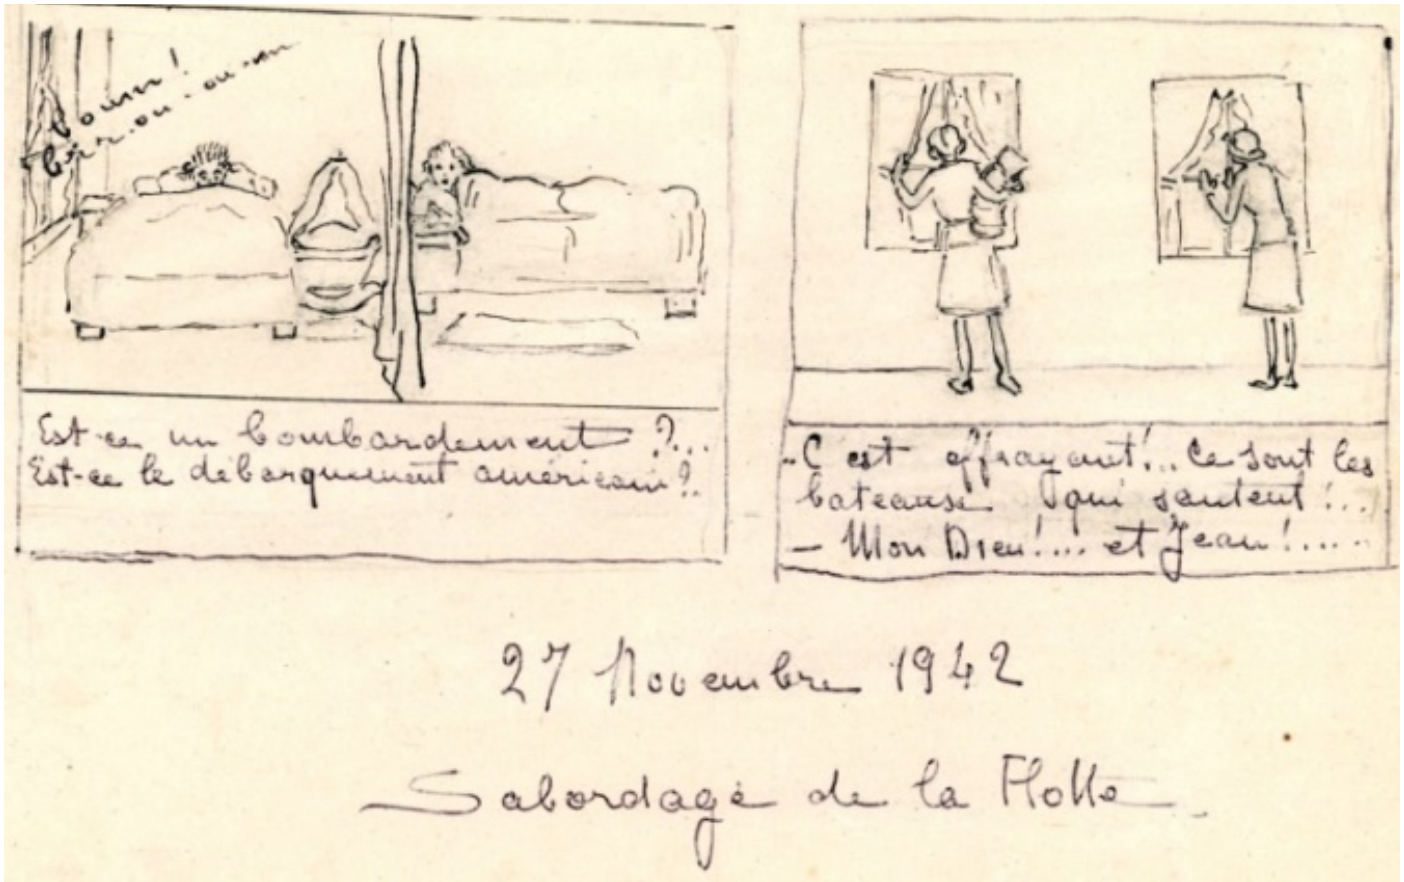 boum!
Est-ce un bombardement ?...
Est-ce le débarquement américain ?..
- C'est effrayant!.. Ce sont les
bateaux qui sautent!...
- Mon Dieu!.... et Jean!.....
27 Novembre 1942
Sabordage de la Flotte